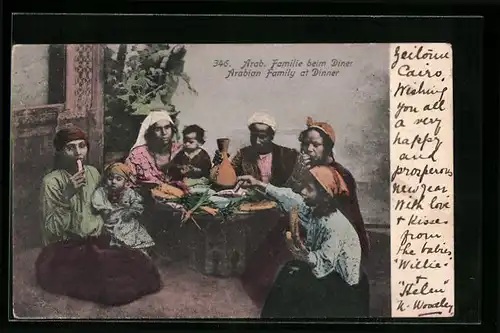 346. Arab. Familie beim Diner
Arabian Family at Dinner
Zeitoune
Cairo,
Wishing
you all
a very
happy
and
prosperous
new year
With love
& Kisses
from
the babies
"Willie"
&
"Helen"
K. Woodley